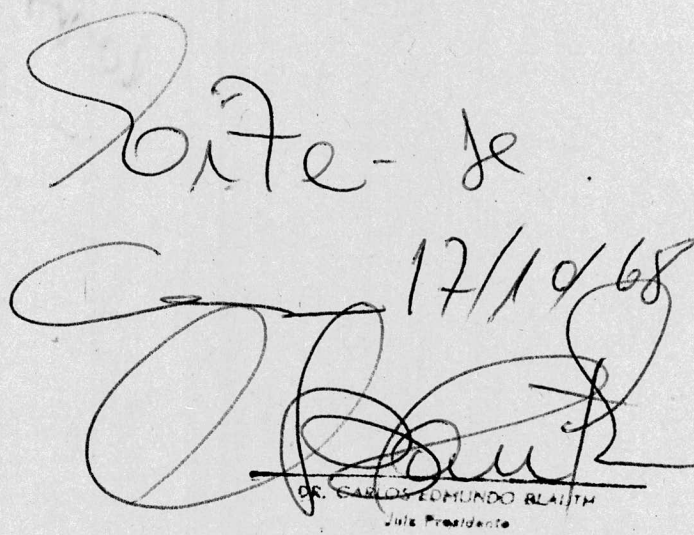 -se.
17/10/68
DR. CARLOS EDMUNDO BLAUTH
Juiz Presidente